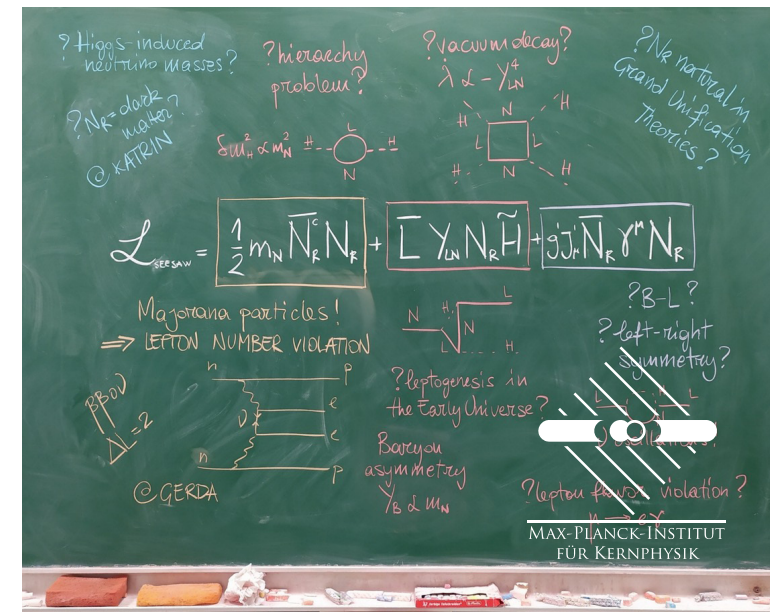 ? Higgs-induced
neutrino masses?
? N_R = dark
matter?
@ KATRIN
? hierarchy
problem?
δm_H² ∝ m_N²
H
L
H
N
? vacuum decay?
λ ∝ - Y_LN⁴
H
N
H
L
L
H
N
H
? N_R natural in
Grand Unification
Theories?
ℒ_SEESAW = ½ m_N N̄_R^c N_R + L̄ Y_LN N_R H̃ + g'j'_μ N̄_R γ^μ N_R
Majorana particles!
⇒ LEPTON NUMBER VIOLATION
ββ0ν
ΔL=2
n
p
e
ν
e
n
p
@ GERDA
N
H
L
N
L
H
? leptogenesis in
the Early Universe?
Baryon
asymmetry
Y_B ∝ m_N
? B-L?
? left-right
symmetry?
L
H
H
L
? lepton flavor violation?
μ → eγ
MAX-PLANCK-INSTITUT
FÜR KERNPHYSIK